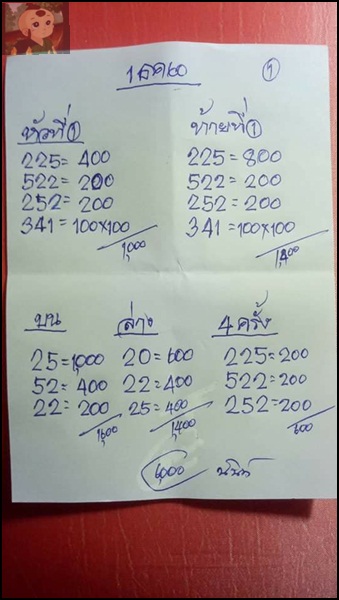 1 ธค 60
①
หัวที่ ①
225 = 400
522 = 200
252 = 200
341 = 100x100
1,000
ท้ายที่ ①
225 = 800
522 = 200
252 = 200
341 = 100x100
1,400
บน
25 = 1,000
52 = 400
22 = 200
1,600
ล่าง
20 = 600
22 = 400
25 = 400
1,400
4 ครั้ง
225 = 200
522 = 200
252 = 200
600
6,000